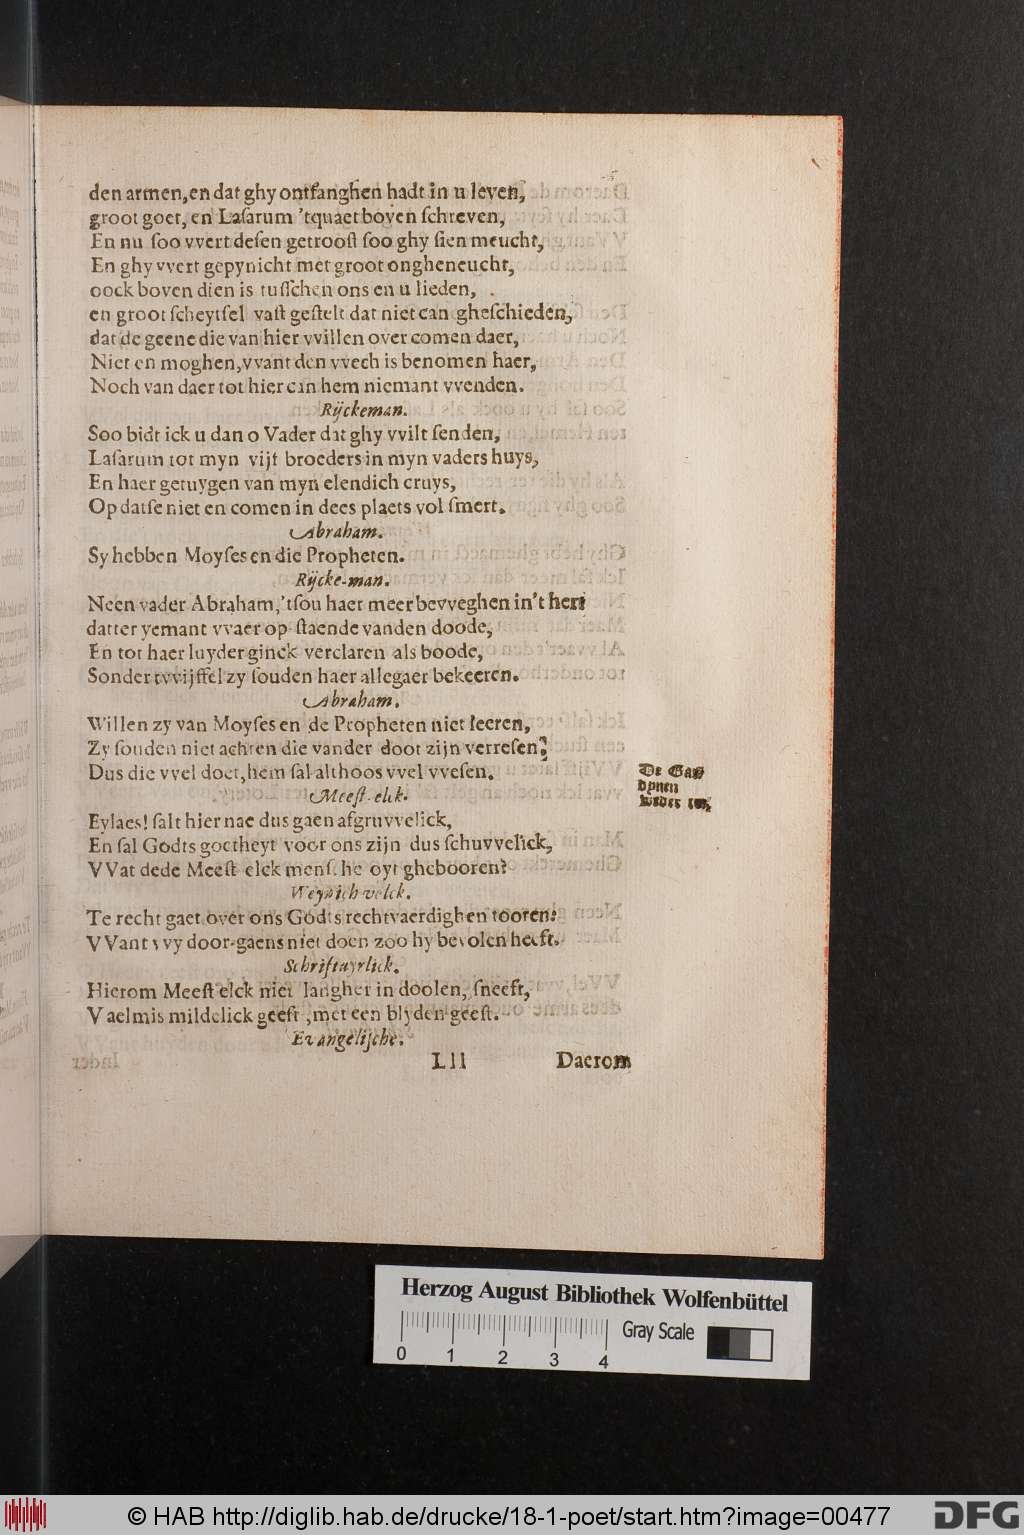 den armen, en dat ghy ontfanghen hadt in u leven,
groot goet, en Laſarum 'tquaet boven ſchreven,
En nu ſoo vvert deſen getrooſt ſoo ghy ſien meucht,
En ghy vvert gepynicht met groot ongheneucht,
oock boven dien is tuſſchen ons en u lieden,
en groot ſcheytſel vaſt geſtelt dat niet can gheſchieden,
dat de geene die van hier vvillen over comen daer,
Niet en moghen, vvant den vvech is benomen haer,
Noch van daer tot hier can hem niemant vvenden.
Rijckeman.
Soo bidt ick u dan o Vader dat ghy vvilt ſenden,
Laſarum tot myn vijf broeders in myn vaders huys,
En haer getuygen van myn elendich cruys,
Op datſe niet en comen in dees plaets vol ſmert.
Abraham.
Sy hebben Moyſes en die Propheten.
Rijcke-man.
Neen vader Abraham, 'tſou haer meer bevveghen in't hert
datter yemant vvaer op ſtaende vanden doode,
En tot haer luyder ginck verclaren als boode,
Sonder tvvijffel zy ſouden haer allegaer bekeeren.
Abraham.
Willen zy van Moyſes en de Propheten niet leeren,
Zy ſouden niet achten die vander doot zijn verreſen?
Dus die vvel doet, hem ſal althoos vvel vveſen.
De Gaſt
Meeſt-elck.
Eylaes! ſalt hier nae dus gaen afgruvvelick,
En ſal Godts goetheyt voor ons zijn dus ſchuvvelick,
VVat dede Meeſt elck menſche oyt ghebooren?
Weynich velck.
Te recht gaet over ons Godts rechtvaerdighen tooren:
VVant vvy door-gaens niet doen zoo hy bevolen heeft.
Schriftuyrlick.
Hierom Meeſt elck niet langher in doolen, ſneeft,
V aelmis mildelick geeft, met een blyden geeſt.
Evangeliſche.
Lll Daerom
Herzog August Bibliothek Wolfenbüttel
Gray Scale
0 1 2 3 4
© HAB http://diglib.hab.de/drucke/18-1-poet/start.htm?image=00477
DFG